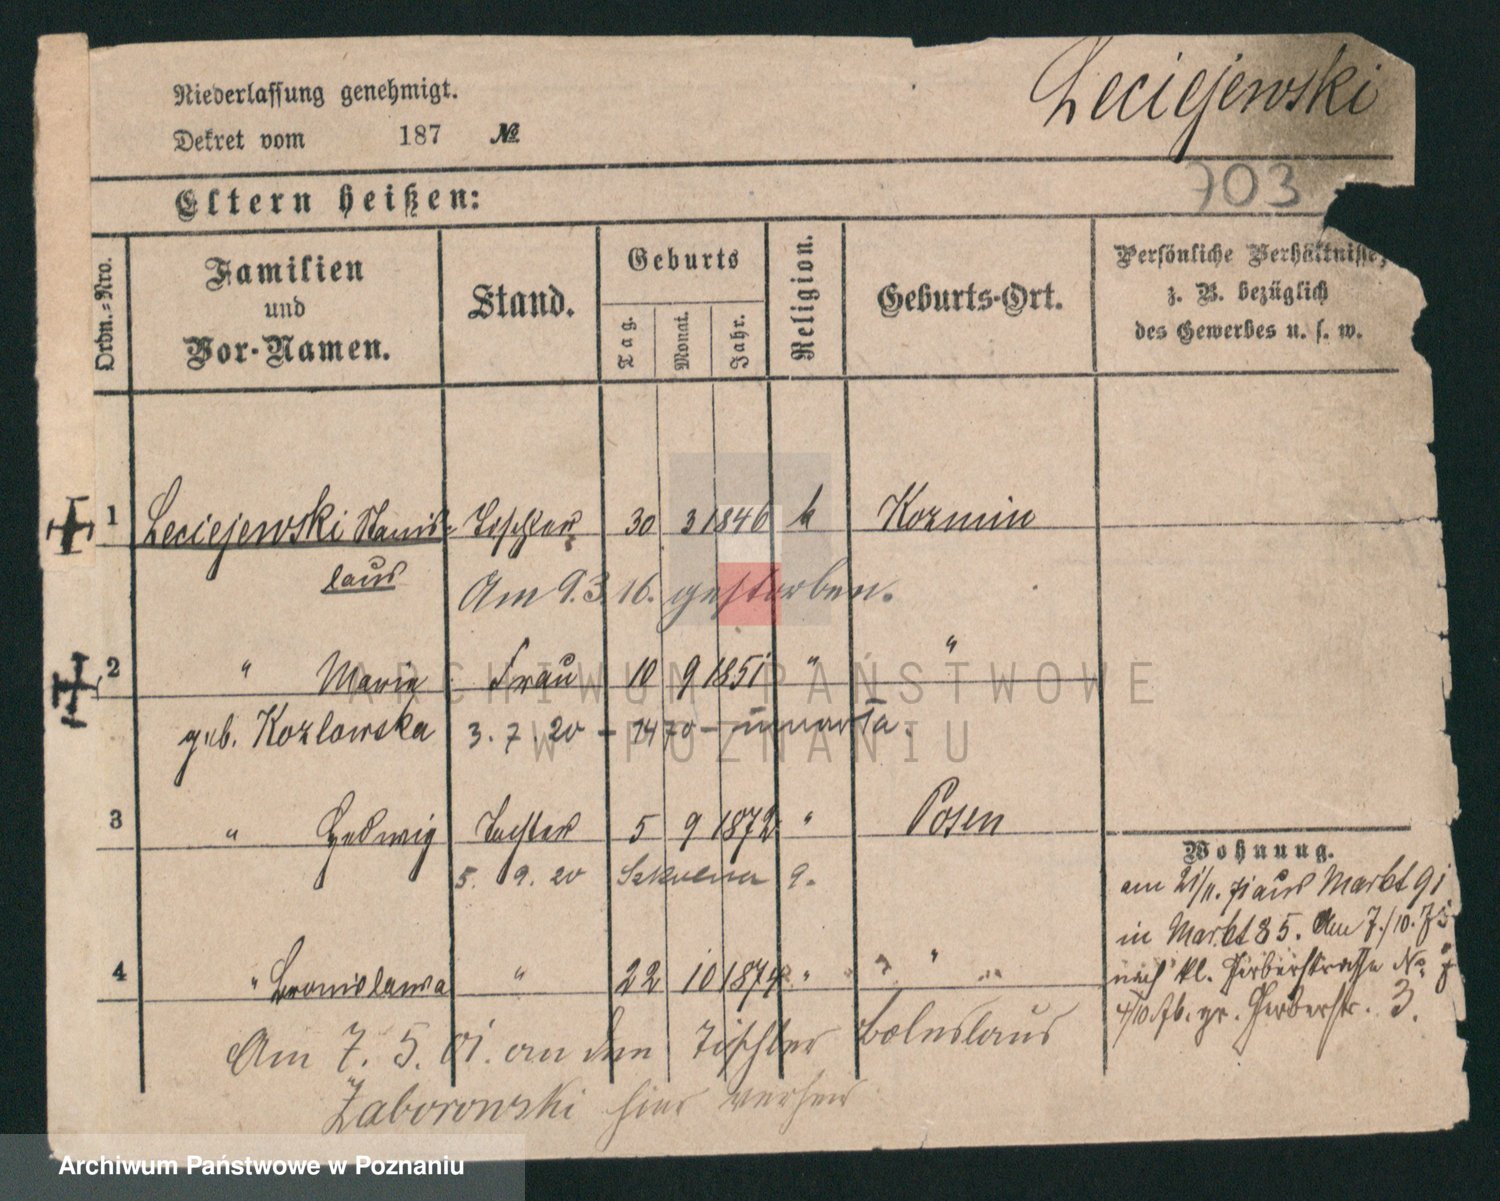 Niederlassung genehmigt.
Leciejewski
Dekret vom 187 №
703
Eltern heißen:
Ordn.-Nro.
Familien
und
Vor-Namen.
Stand.
Geburts
Tag.
Monat.
Jahr.
Religion.
Geburts-Ort.
Persönliche Verhältnisse,
z. B. bezüglich
des Gewerbes u. s. w.
1 Leciejewski Stanis- Tischler 30 3 1846 k Kozmin
laus
Am 9.3.16. gestorben.
2 " Maria Frau 10 9 1851 " "
geb. Kozlowska 3.7.20 - 1470 - umarła.
3 " Hedwig Tochter 5 9 1872 " Posen
5. 9. 20 Szkolna 9.
Wohnung.
am 21/11. 71 aus Markt 91
in Markt 85. Am 7./10. 75
nach kl. Gerberstrasse No
gr. Gerberstr. 3.
4 " Bronislawa " 22 10 1874 " "
Am 7. 5. 01. an den Tischler Boleslaus
Zaborowski hier verh
ARCHIWUM PAŃSTWOWE
W POZNANIU
Archiwum Państwowe w Poznaniu